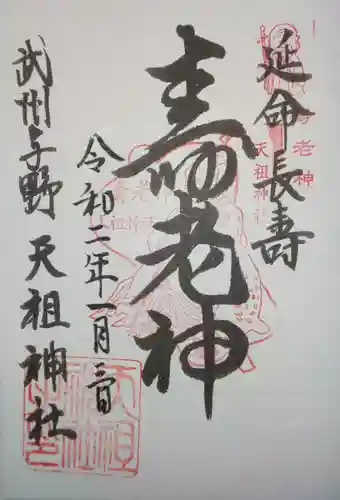 延命長寿
寿老神
天祖神社
寿老神
令和二年一月三日
武州与野天祖神社
天祖神社之印